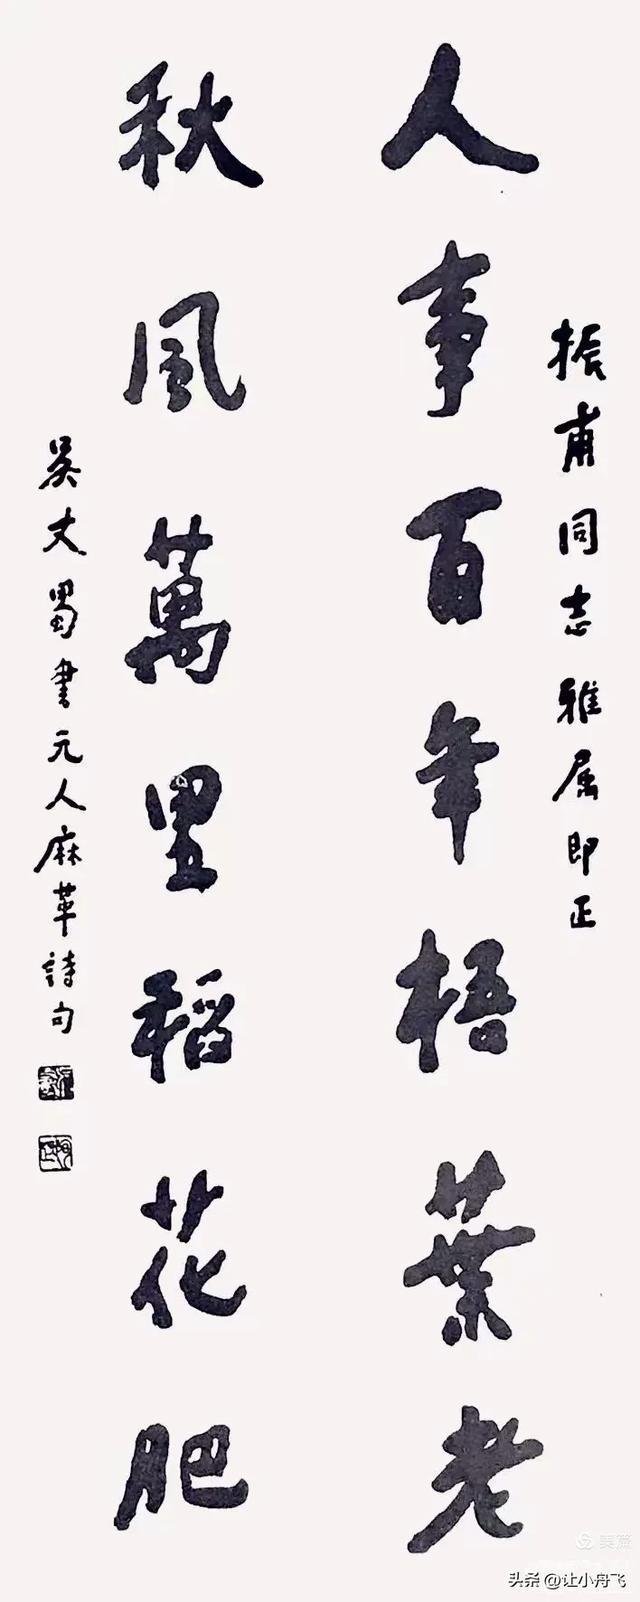 振甫同志雅属即正
人事百年梧葉老
秋風萬里稻花肥
吴丈蜀書元人麻革詩句
美篇
头条 @让小舟飞